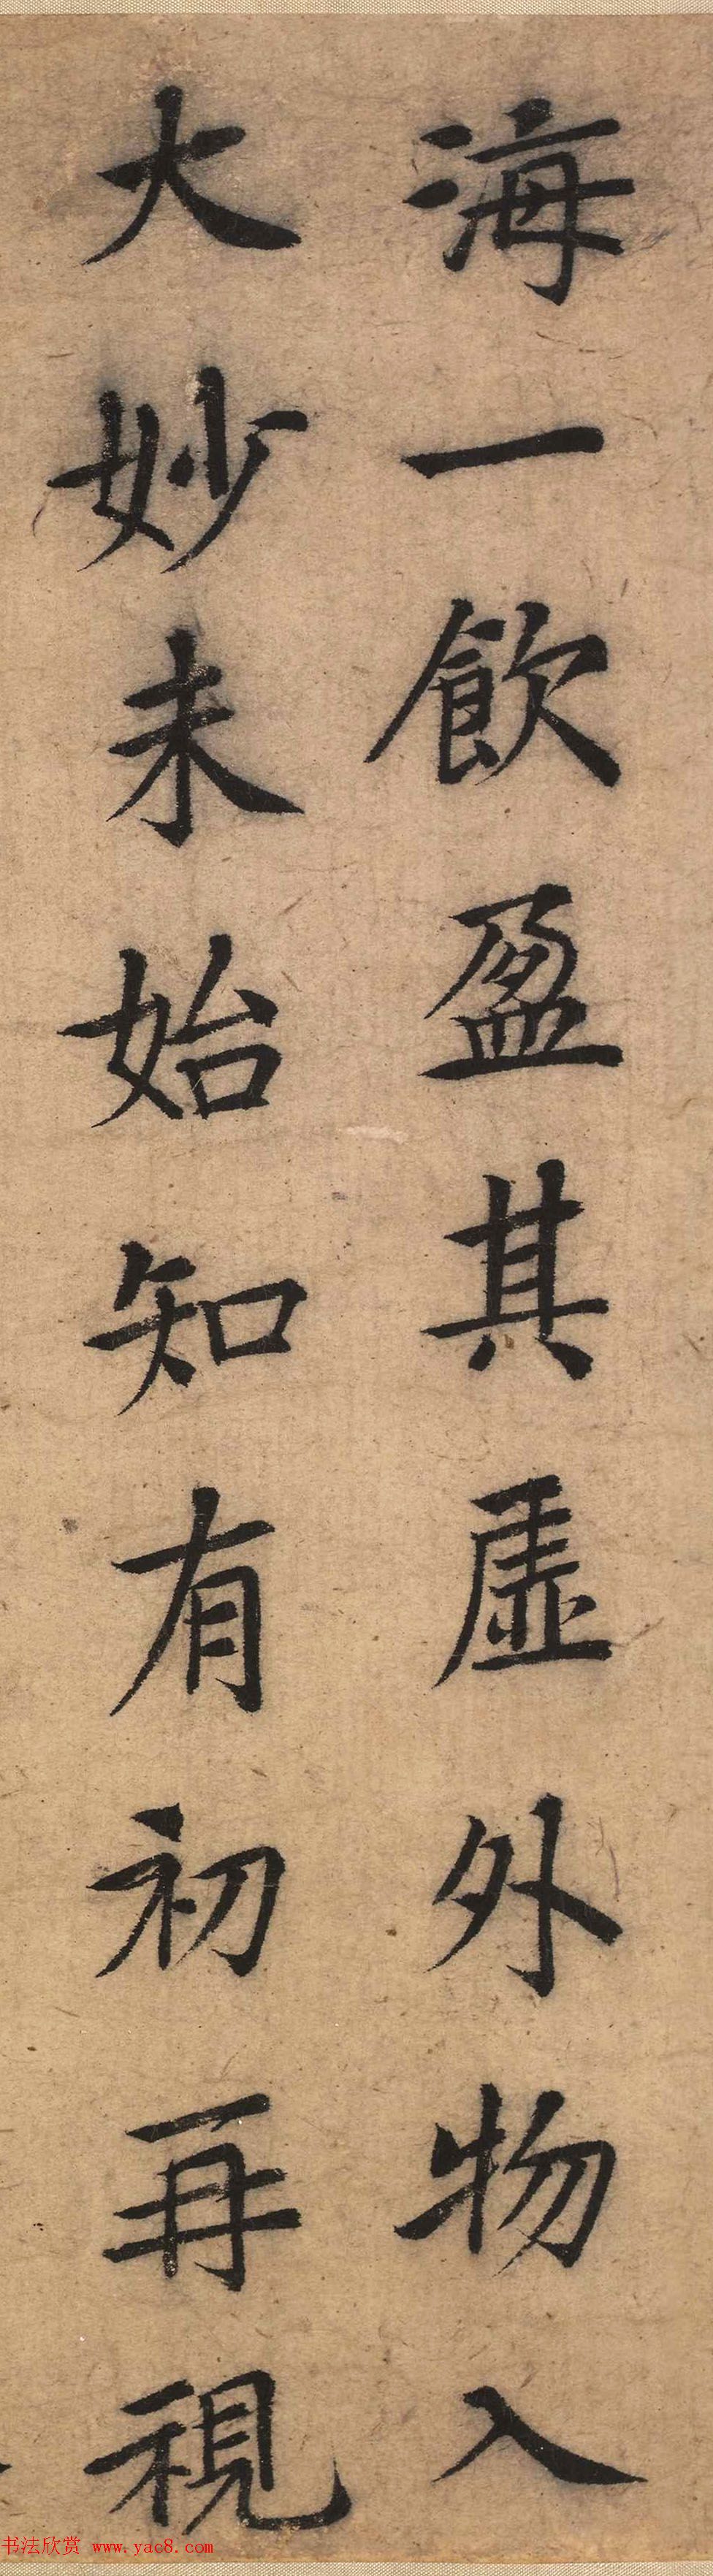 海一飲盈其虛外物入
大妙未始知有初再視
书法欣赏 www.yac8.com